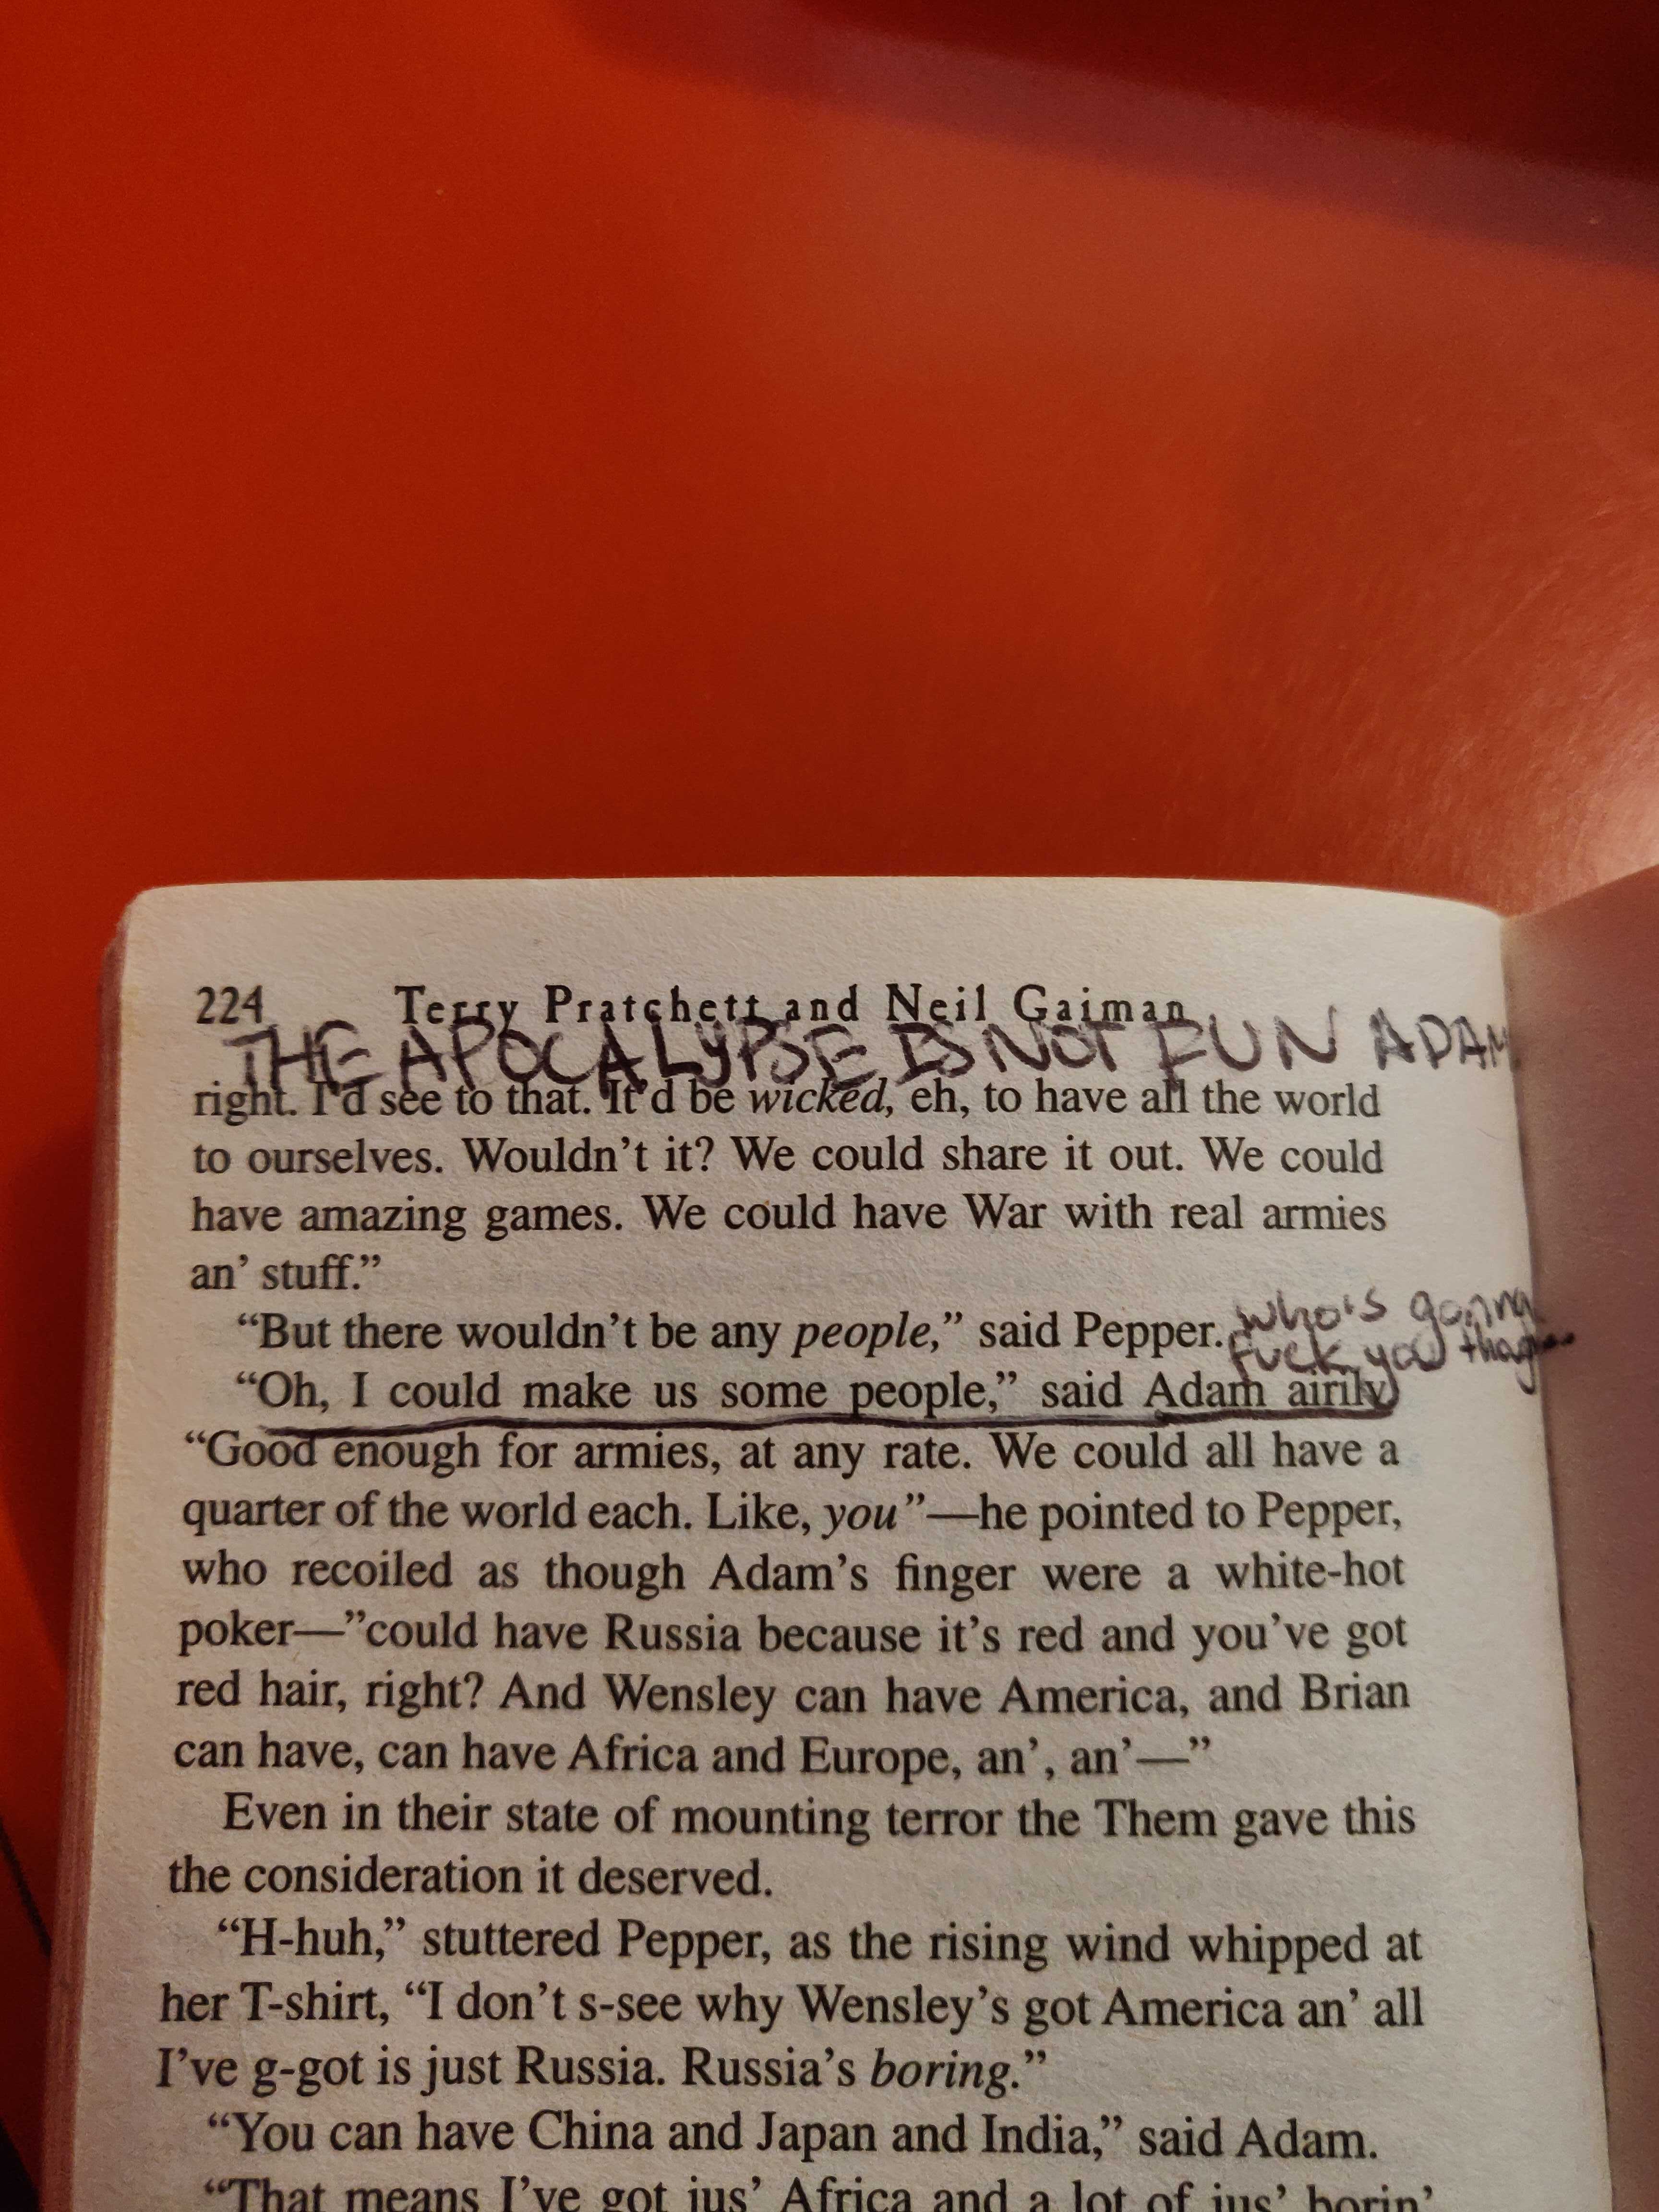 224 Terry Pratchett and Neil Gaiman
THE APOCALYPSE IS NOT FUN ADAM
right. I'd see to that. It'd be wicked, eh, to have all the world
to ourselves. Wouldn't it? We could share it out. We could
have amazing games. We could have War with real armies
an' stuff.”
“But there wouldn't be any people,” said Pepper.
who's gonna
fuck you tho
“Oh, I could make us some people,” said Adam airily.
“Good enough for armies, at any rate. We could all have a
quarter of the world each. Like, you”—he pointed to Pepper,
who recoiled as though Adam's finger were a white-hot
poker—”could have Russia because it's red and you've got
red hair, right? And Wensley can have America, and Brian
can have, can have Africa and Europe, an', an'—”
Even in their state of mounting terror the Them gave this
the consideration it deserved.
“H-huh,” stuttered Pepper, as the rising wind whipped at
her T-shirt, “I don't s-see why Wensley's got America an' all
I've g-got is just Russia. Russia's boring.”
“You can have China and Japan and India,” said Adam.
“That means I've got jus' Africa and a lot of jus' borin'